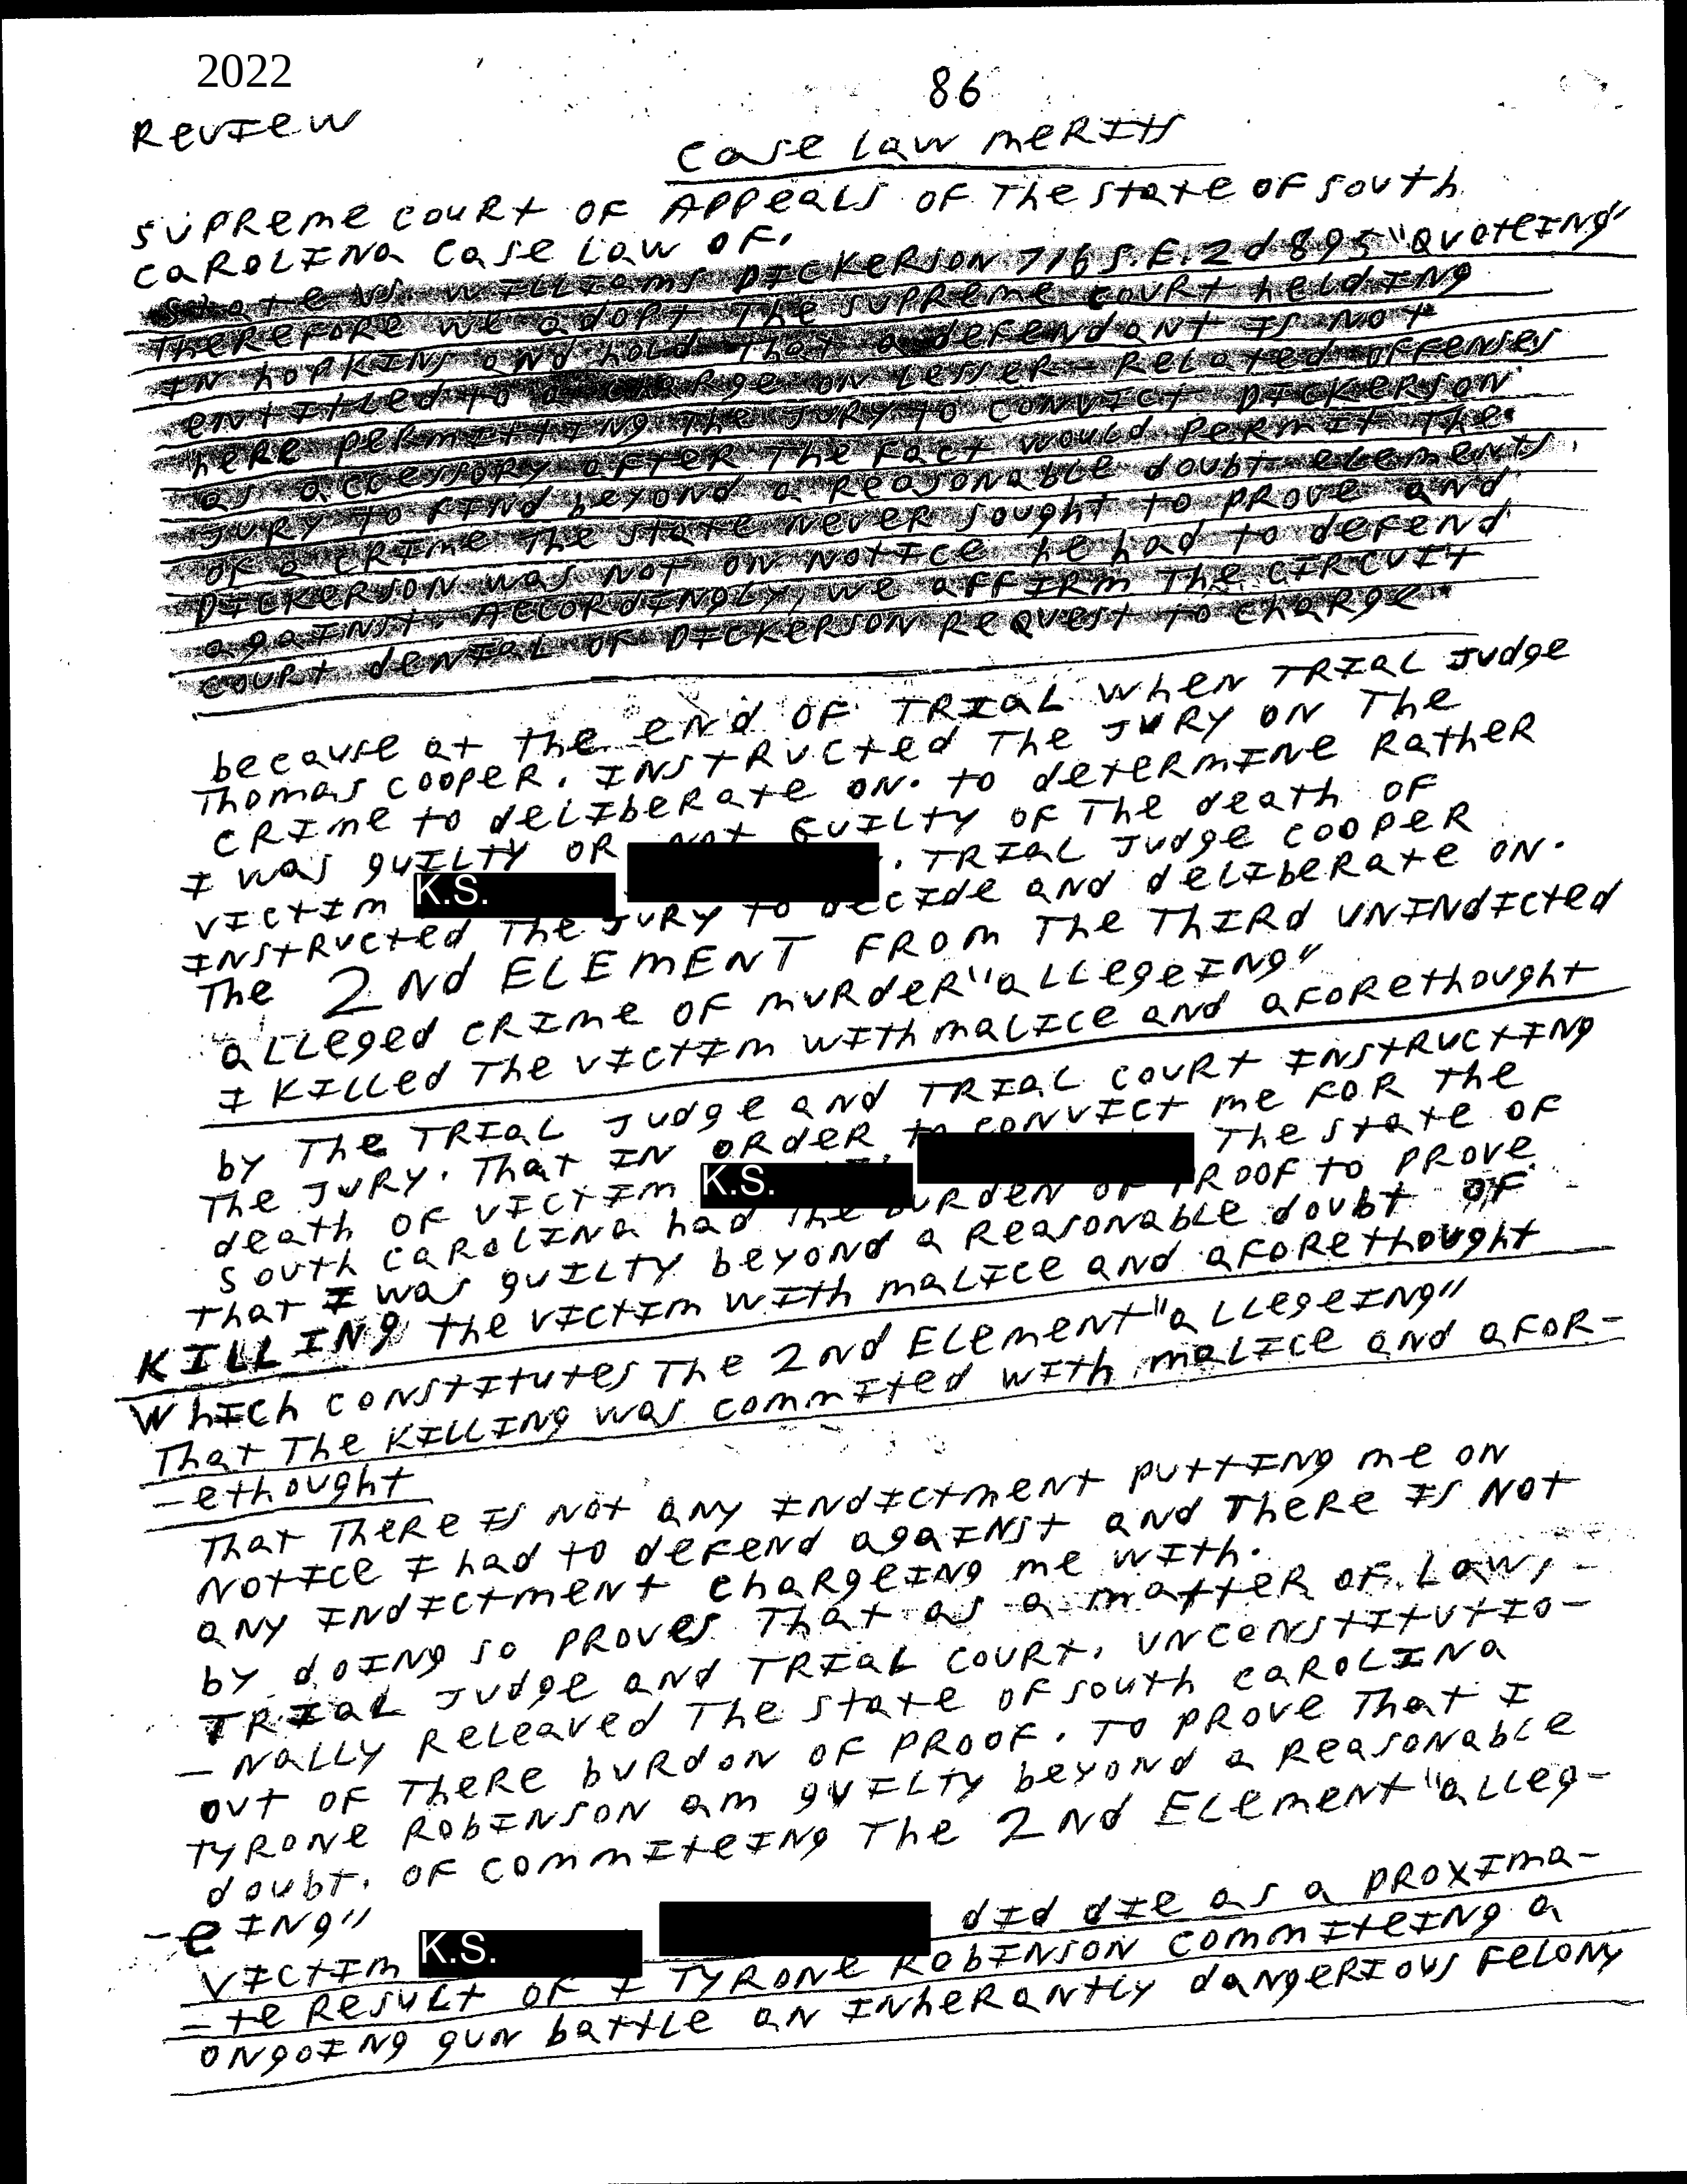 2022
86
REVIEW
Case Law MERITS
SUPREME COURT OF APPEALS OF The State OF South
CAROLINA Case Law OF.
State vs. WILLIAMS DICKERSON 716 S.E.2d 895 "QuoteING"
THEREFORE we adopt The SUPREME COURT heldING
IN HOPKINS and hold That a defendant IS NOT
entITLed to a charge on Lesser-Related offenses
here permITTING The JURY to convict DICKERSON
as accessory after The Fact would Permit The
JURY to FIND beyond a Reasonable doubt elements
OF a CRIME The State Never sought to PROVE and
DICKERSON was NOT ON NOTICE he had to defend
against. ACCORDINGLY, we AFFIRM The CIRCUIT
COURT denial of DICKERSON Request to charge
because at the end OF TRIAL when TRIAL Judge
Thomas COOPER. INSTRUCted The JURY ON The
CRIME to deLIBERate ON. to deteRMINE Rather
I was guILTY OR Not GUILTY OF The death OF
VICTIM K.S. . TRIAL Judge COOPER
INSTRUCTED The JURY to decide and deLIBERate ON.
The 2Nd ELEMENT FROM The THIRd UNINDICTed
aLLeged CRIME OF MURdeR "aLLegeING"
I KILLed The VICTIM WITH maLICE and aforethought
by The TRIaL Judge and TRIaL COURT INSTRUCTING
The JURY. That IN ORdeR to CONVICT me FOR The
death OF VICTIM K.S. The State OF
South CAROLINA had The BURDEN OF PROOF to PROVE
That I was guILTY beyond a Reasonable doubt OF
KILLING The VICTIM WITH maLICE and aforethought
Which constitutes The 2nd ELement "aLLegeING"
That The KILLING was commited with maLICE and afor-
-ethought
That There IS NOt any INDICTMENT puttING me ON
NOTICE I had to defend against and There IS NOT
any INDICTMENT chargeING me with.
by doING so PROVES That as a matter of Law,
TRIAL Judge and TRIAL COURT, UNCONSTITUTIO-
-NALLY ReLeaved The state OF south CAROLINA
out OF There burdon OF PROOF. To PROVE That I
TYRONE ROBINSON am guILTY beyond a Reasonable
doubt. OF commIteING The 2Nd ELement "aLLeg-
-eING"
VICTIM K.S. did die as a PROXIMA-
-te ResuLt OF I TYRONE ROBINSON commIteING a
ONgoING gun battLe an INheRantLy dangeRIous FeLONy